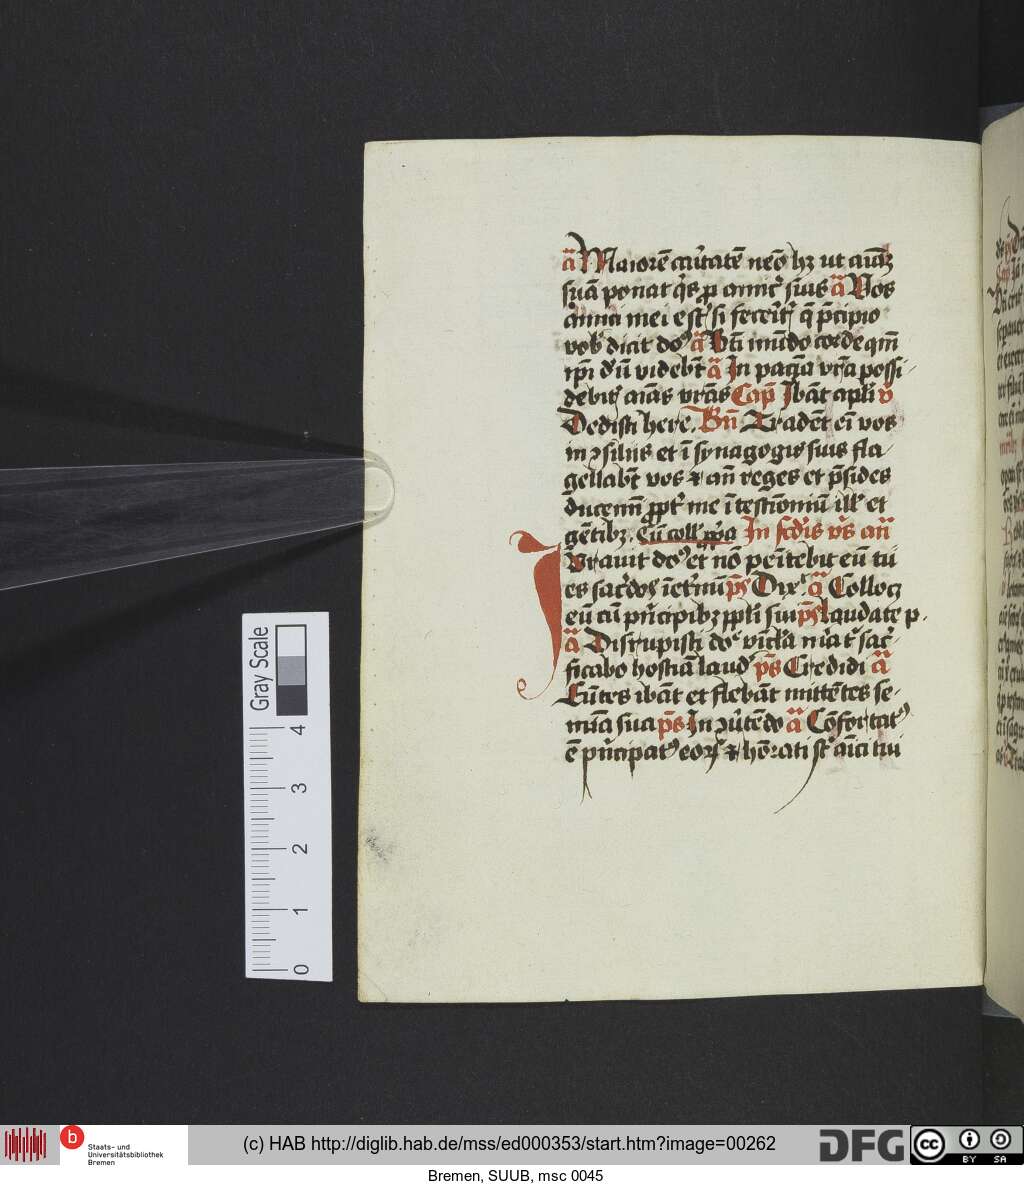 a͞ Maiorē caritatē nēo hꝫ ut aīaꝫ
suā ponat q's ꝓ amic' suis a͞ Vos
amici mei est' si fecerit' q̄ p̄cipio
vob' dicit dn̄s a͞ Bt̄i mūdo corde qm̄
ip̄i dn̄ū videbt̄ a͞ In paciā vr̄a possi-
debit' aīas vr̄as Cap̄ Ibāt apl̄i v̄
Dedisti here. Bn̄ Tradēt eī vos
in ꝯsilijs et ī synagogis suis fla
gellabt̄ vos ⁊ an̄ reges et p̄sides
ducemī ꝓpt' me ī testīoniū ill' et
gētibꝫ. Cū coll' pͥa In sed'is v̄s an̄
Iuravit dn̄s et nō penitebit eū tu
es sac'dos īet'nū p̄s Dix'. a͞ Colloc
eū cū pͥncipibꝫ ppl̄i sui p̄s laudate p.
a͞ Disrupisti dn̄e vīcl̄a m̄a t' sac'-
ficabo hostiā laud' p̄s Credidi a͞
Eūtes ibāt et flebāt mittētes se-
mīa sua p̄s In ꝯv'tēdo a͞ Cōfortat'
ē pͥncipat' eorꝫ ⁊ honorati st̄ aīci tui
Gray Scale
4
3
2
1
0
b Staats- und
Universitätsbibliothek
Bremen
(c) HAB http://diglib.hab.de/mss/ed000353/start.htm?image=00262
DFG
cc BY SA
Bremen, SUUB, msc 0045